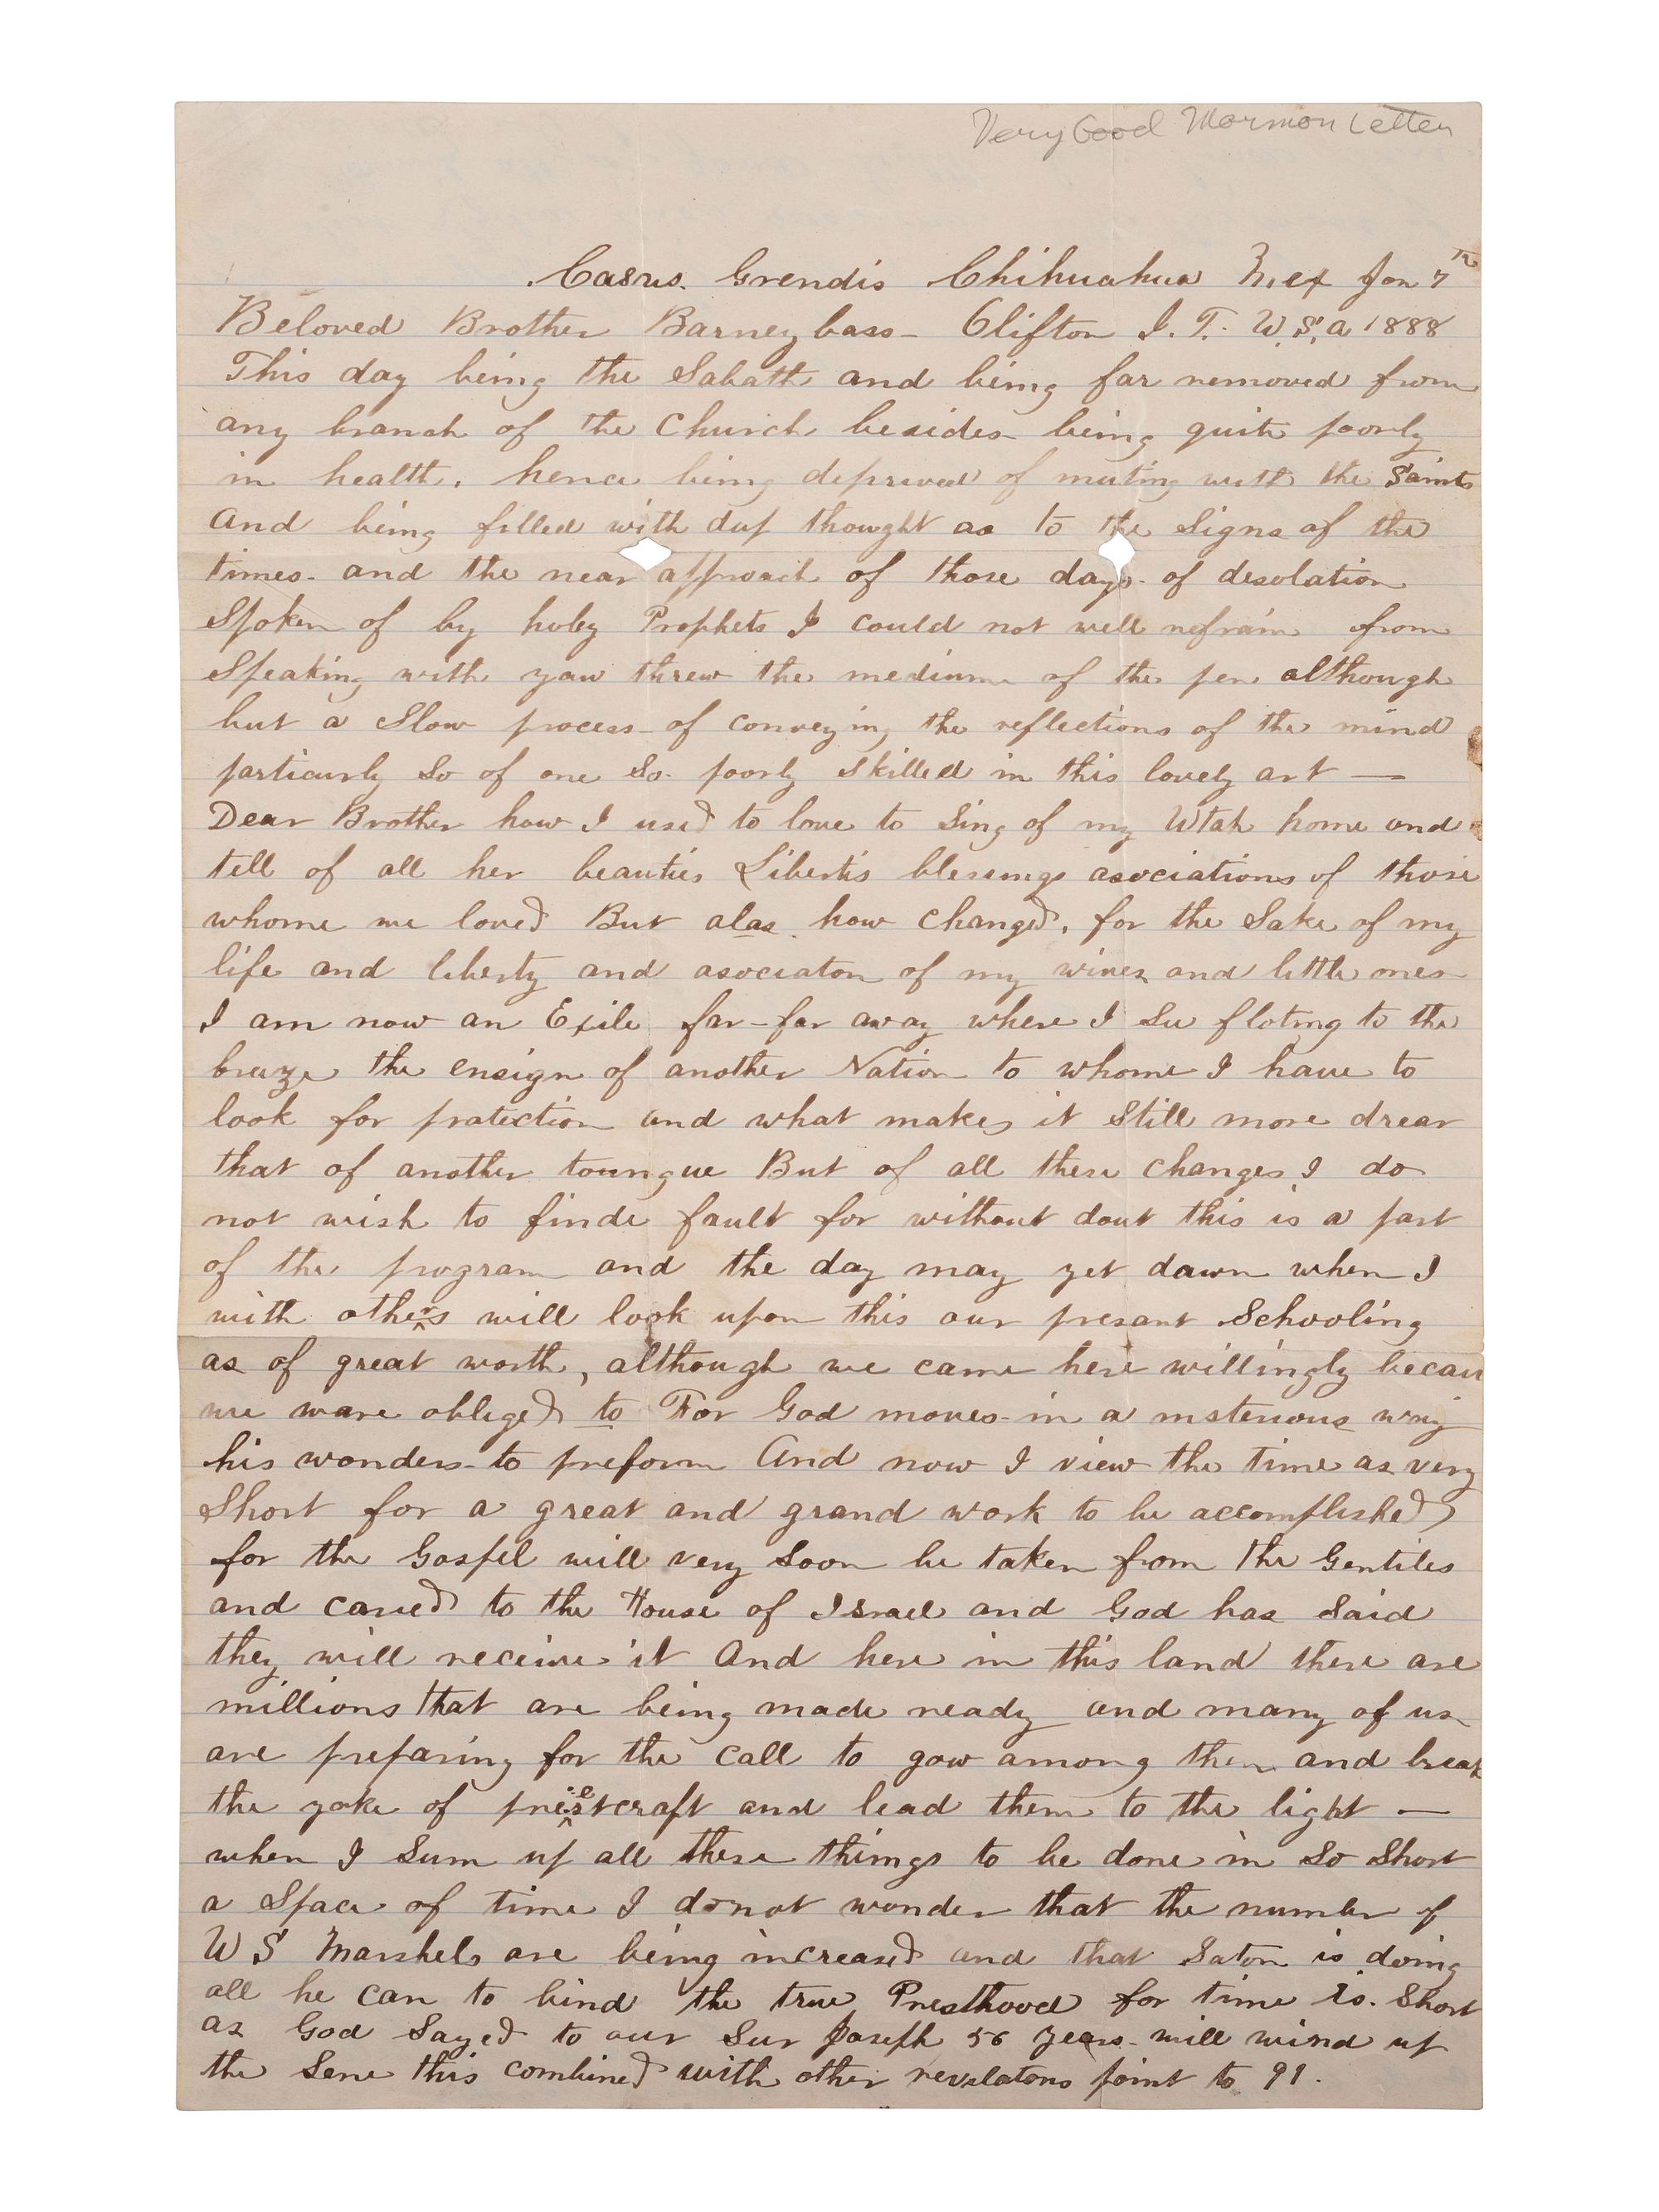 Very Good Mormon Letter
Casus. Grendis Chihuahua Mex Jan 7th
Beloved Brother Barney bass- Clifton I. T. U.S.a 1888
This day being the Sabath and being far removed from
any branch of the Church besides being quite poorly
in health. hence being deprived of meeting with the Saints
And being filled with deep thought as to the Signs of the
times. and the near approach of those days of desolation
Spoken of by holey Prophets I could not well refrain from
Speaking with you threw the medium of the pen although
but a Slow process of conveying the reflections of the mind
particurly So of one So poorly Skilled in this lovely art —
Dear Brother how I used to love to Sing of my Utah home and
tell of all her beauties Libertis blessings asociations of those
whome we loved But alas how changed, for the Sake of my
life and liberty and asociaton of my wives and little ones
I am now an Exile far-far away where I See floting to the
breaze the ensign of another Nation to whome I have to
look for protection and what makes it Still more drear
that of another toungue But of all these changes I do
not wish to finde fault for without dout this is a part
of the program and the day may yet dawn when I
with others will look upon this our present Schooling
as of great worth, although we came here willingly becau
we ware obliged to For God moves in a misterious way
his wonders to preform And now I view the time as very
Short for a great and grand work to be accomplished
for the Gospel will very Soon be taken from the Gentiles
and caried to the House of Israel and God has Said
they will receive it And here in this land there are
millions that are being made ready and many of us
are preparing for the call to gow among them and break
the yoke of priestcraft and lead them to the light —
when I Sum up all these things to be done in So Short
a Space of time I do not wonder that the number of
U S Marshels are being increased and that Saton is doing
all he can to bind the true Presthood for time is. Short
as God Sayed to our Seer Joseph 56 years will wind up
the Sene this combined with other revelatons point to 91.